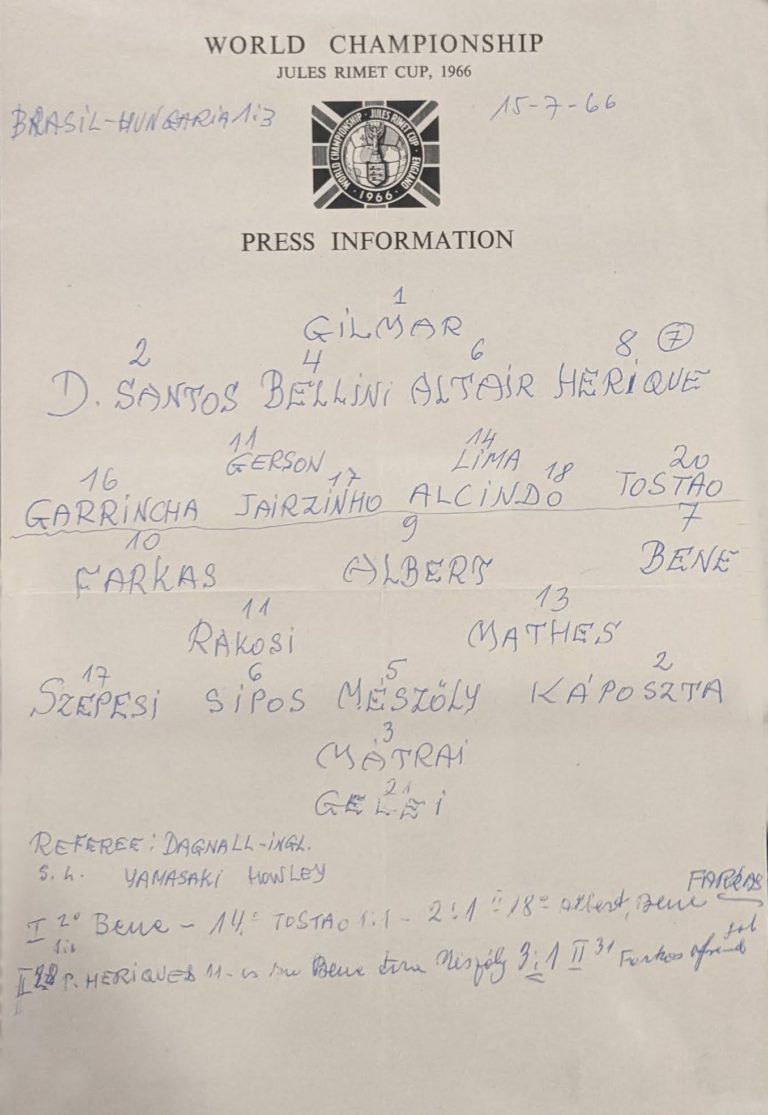 WORLD CHAMPIONSHIP
JULES RIMET CUP, 1966
BRASIL-HUNGARIA 1:3
15-7-66
WORLD CHAMPIONSHIP · JULES RIMET CUP · ENGLAND
· 1966 ·
PRESS INFORMATION
1
GILMAR
2 4 6 8 7
D. SANTOS BELLINI ALTAIR HERIQUE
11 14
GERSON LIMA
16 17 18 20
GARRINCHA JAIRZINHO ALCINDO TOSTAO
10 9 7
FARKAS ALBERT BENE
11 13
RÁKOSI MATHES
17 6 5 2
SZEPESI SIPOS MÉSZÖLY KÁPOSZTA
3
MÁTRAI
21
GELEI
REFEREE: DAGNALL-INGL.
S. L. YAMASAKI HOWLEY
FARKAS
I 2º Bene - 14.º TOSTAO 1:1 - 2:1 II 18º Albert, Bene
gol
II P. HERIQUES 11- Bene Mészöly 3:1 II 31 Farkas